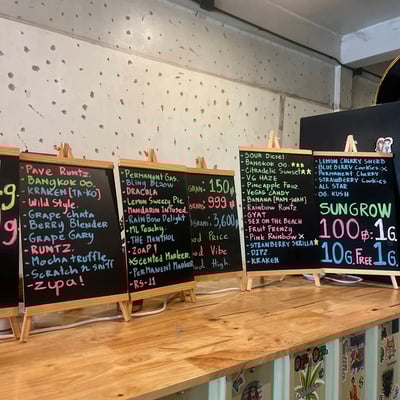 9
9
Pave Runtz.
- BANGKOK OG.
- KRAKEN [TA-KO]
- Wild Style.
- Grape Chata
- Berry Blender
- Grape Gary
- RUNTZ.
- Mocha truffle
- Scratch n sniff
- Zupa!
Permanent Gas.
- Bling Blaow
- DRACULA
- Lemon Sweey Pie
- Mandarin Infused.
- Rainbow Delight
- ML Peachy
- THE MENTHOL
- ZOAP!
- Scented Marker.
- Permanent Marker
- RS-11
GRAM = 150฿
GRAMS: 999฿
GRAMS: 3,600
ood Price
ood Vibe
ood High
- SOUR Diesel
- BANGKOK OG.
- Citradelic Sunset
- VG HAZE
- Pineapple Fruz
- VEGAS CANDY
- BANANA [NAM-WAH]
- Rainbow Runtz
- GYAT
- SEX ON THE BEACH
- FRUIT FRENZY
- Pink Rainbow
- STRAWBERRY GORILLA
- DIPZ
- KRAKEN
- LEMON CHERRY SHERB
- BLUEBERRY COOKIES
- Permanent Cherry
- STRAWBERRY COOKIES
- ALL STAR
- OG KUSH
SUNGROW
100฿:1G.
10G. Free 1G.